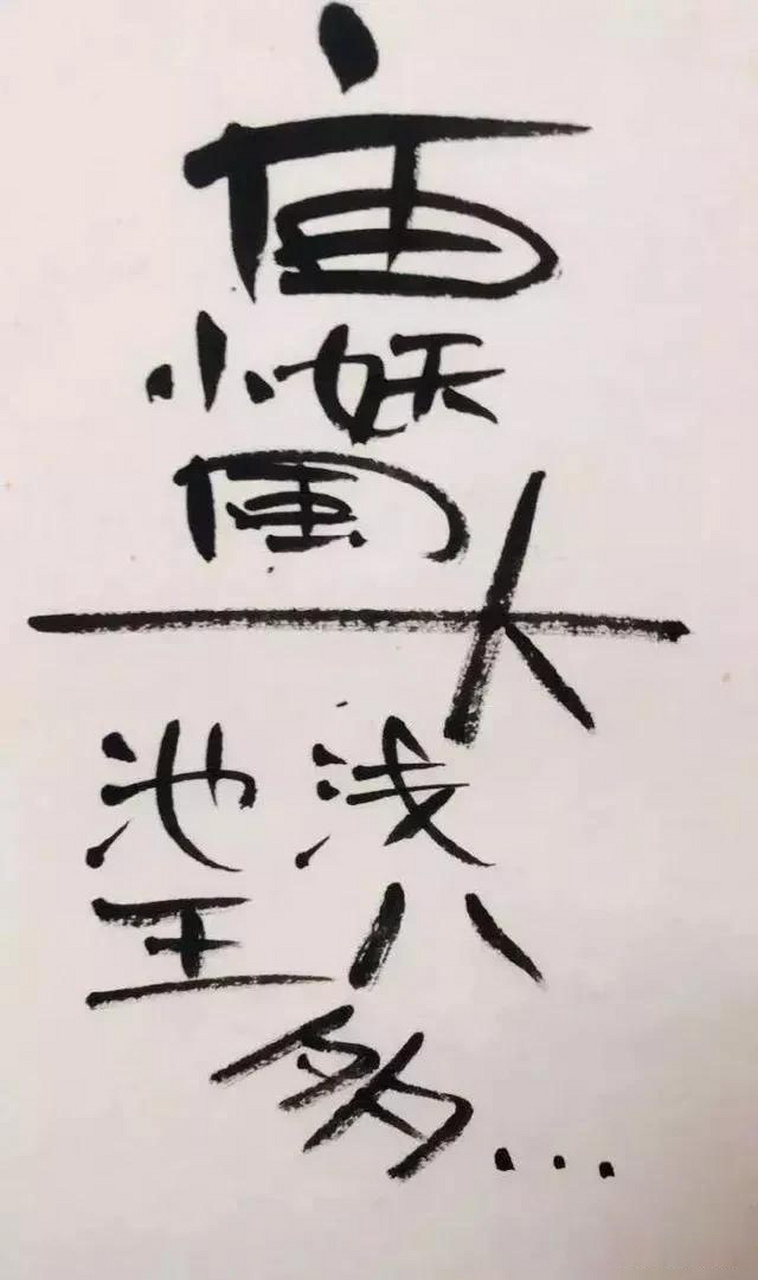 庙
小妖
風
大
池浅
王八
多...